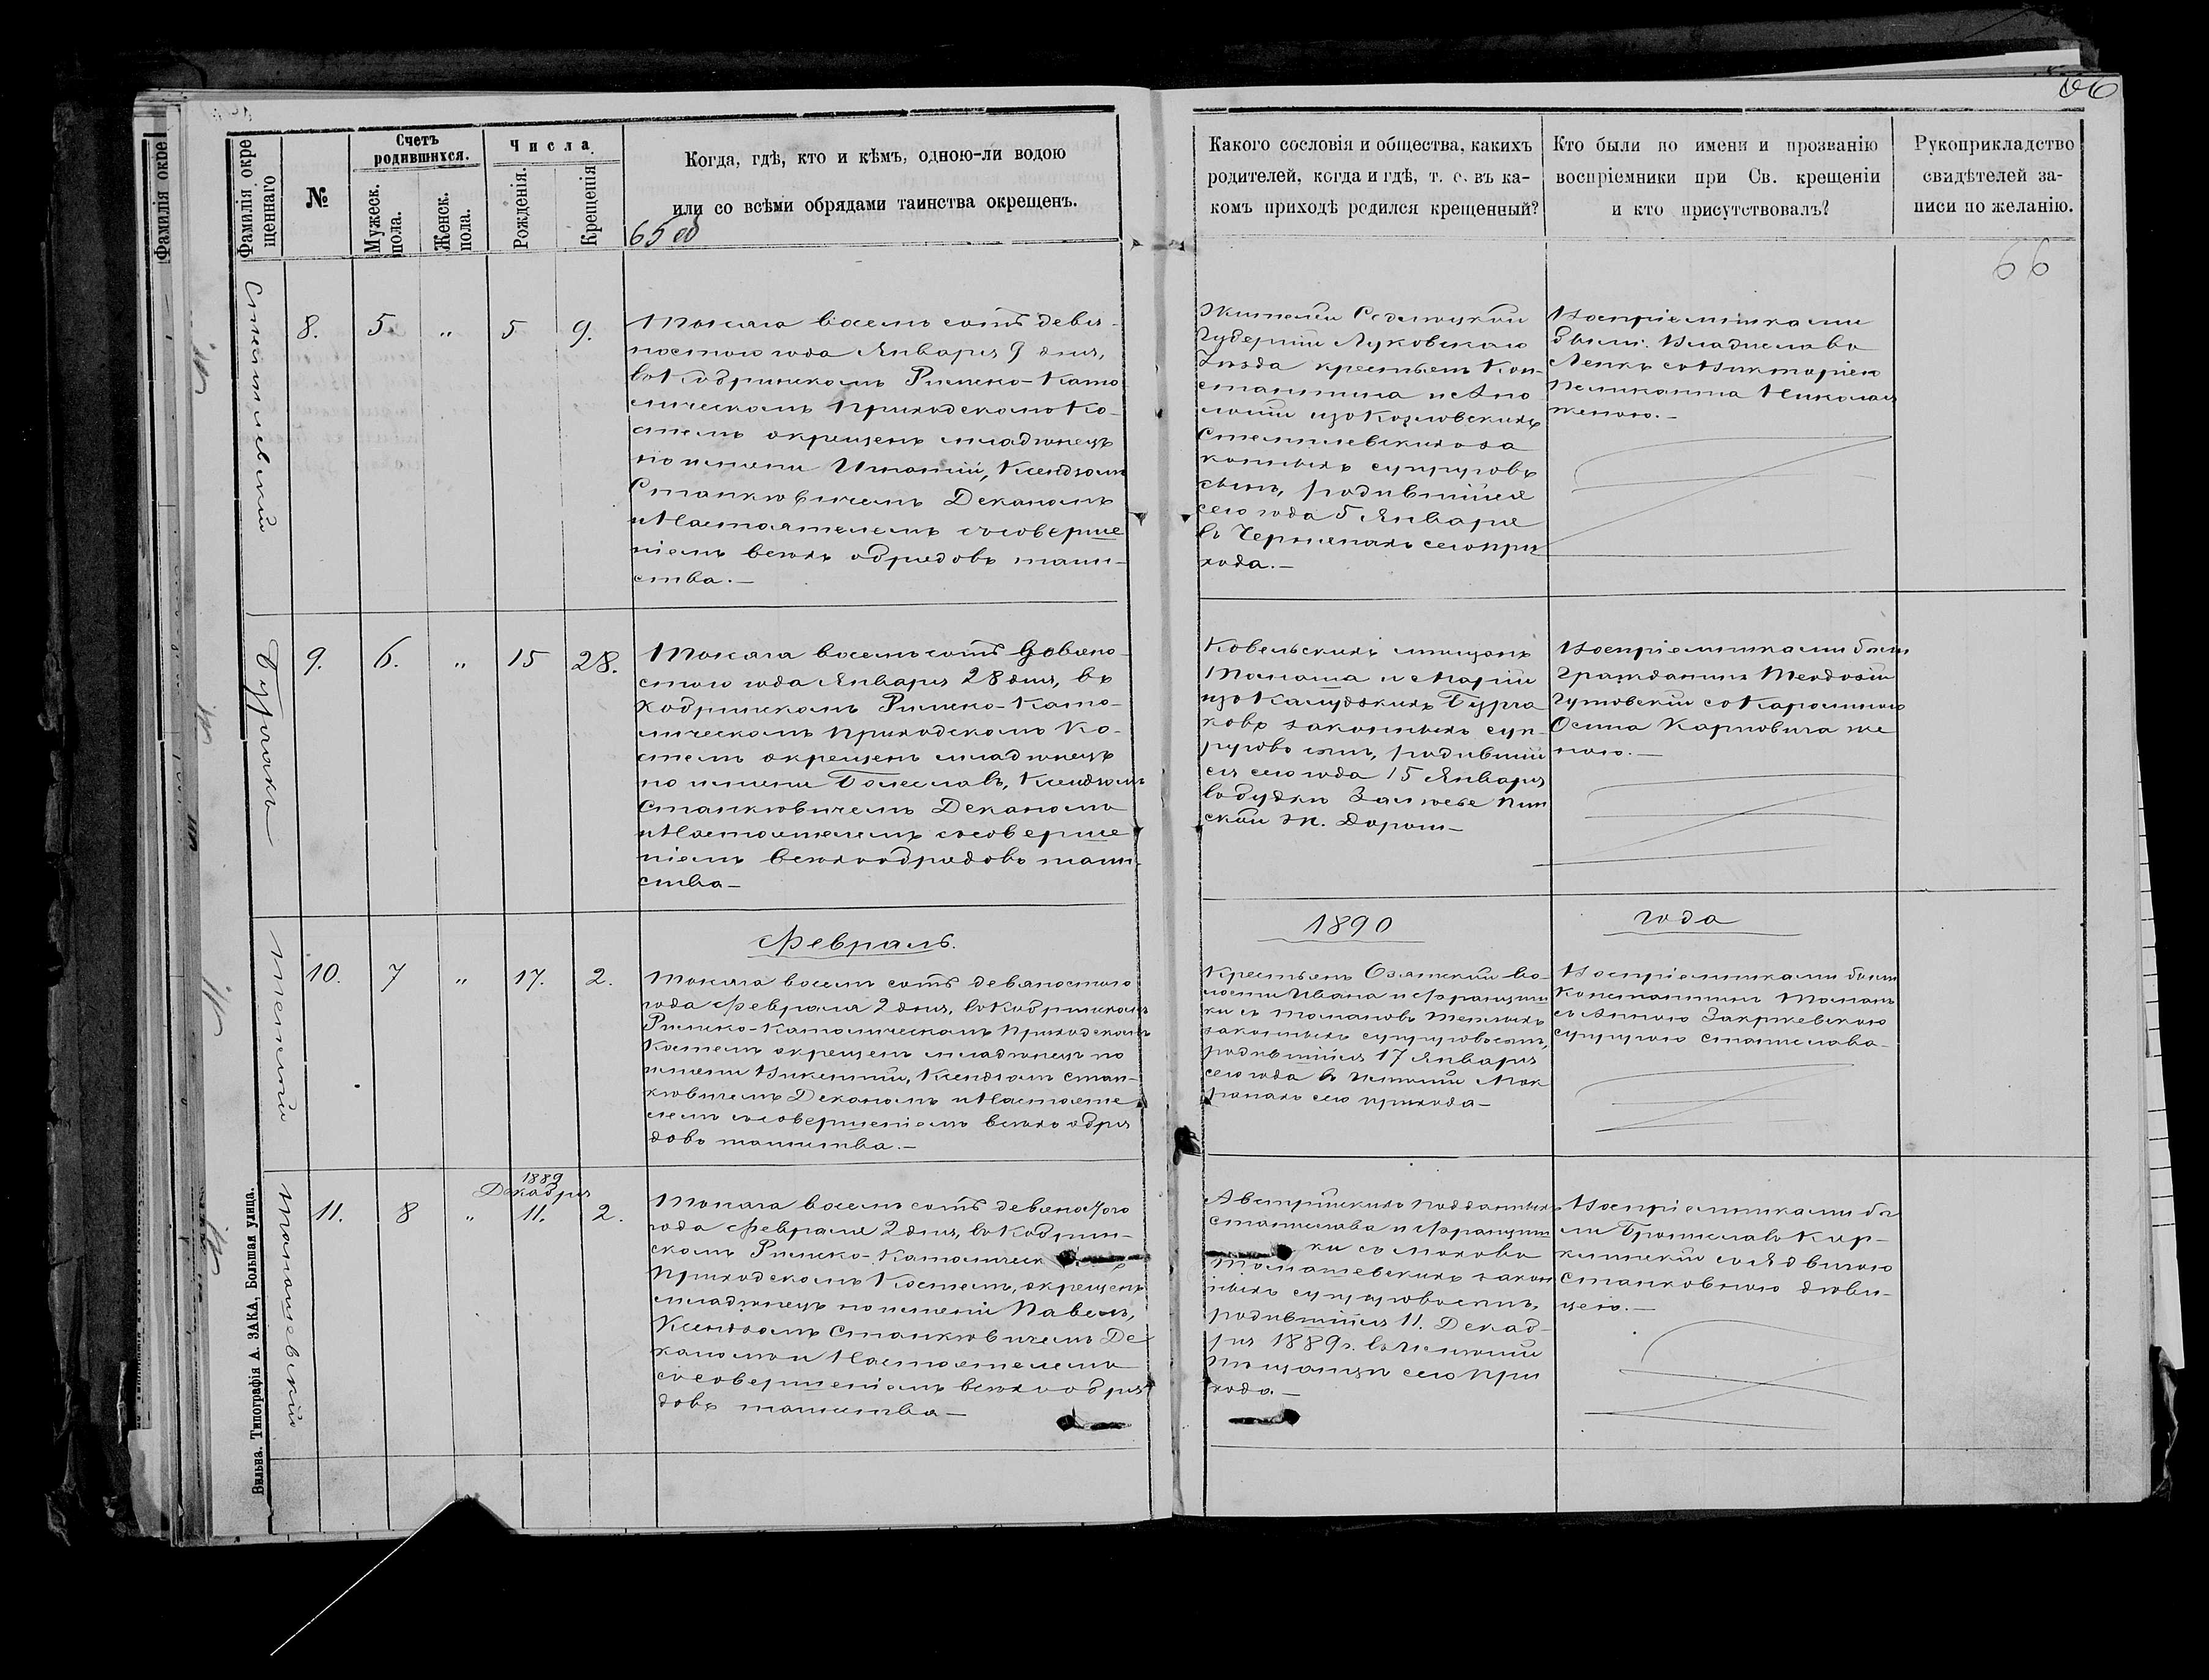 Фамилія окре
Фамилія окре
щеннаго
№
Счетъ
родившихся.
Мужеск.
пола.
Женск.
пола.
Числа.
Рожденія.
Крещенія
Когда, гдѣ, кто и кѣмъ, одною-ли водою
или со всѣми обрядами таинства окрещенъ.
65 об
8. 5 " 5 9.
Тысяча восемь сотъ девя-
ностого года Января 9 дня,
въ Кобринскомъ Римско-Като
лическомъ Приходскомъ Ко-
стелѣ окрещенъ младенецъ
по имени Ксендзомъ
Станкѣвичемъ Деканомъ
и Настоятелемъ съ соверше
ніемъ всѣхъ обрядовъ таин-
ства.—
Буракъ
9. 6. " 15 28.
Тысяча восемь сотъ девяно
стого года Января 28 дня, въ
Кобринскомъ Римско-Като-
лическомъ Приходскомъ Ко-
стелѣ окрещенъ младенецъ
по имени Болеславъ, Ксендзомъ
Станкѣвичемъ Деканомъ
и Настоятелемъ съ соверше
ніемъ всѣхъ обрядовъ таин-
ства—
Февраль.
10. 7 " 17. 2.
Тысяча восемь сотъ девяностого
года Февраля 2 дня, въ Кобринскомъ
Римско-Католическомъ Приходскомъ
Костелѣ окрещенъ младенецъ по
имени Викентій, Ксендзомъ Стан-
кѣвичемъ Деканомъ и Настояте
лемъ съ совершеніемъ всѣхъ обря
довъ таинства.—
Томашевскій
11. 8 " 1889
Декабря
11. 2.
Тысяча восемь сотъ девяностого
года Февраля 2 дня, въ Кобрин-
скомъ Римско-Католическ
Приходскомъ Костелѣ, окрещенъ
младенецъ по имени Павелъ,
Ксендзомъ Станкѣвичемъ Де
каномъ и Настоятелемъ
съ совершеніемъ всѣхъ обря
довъ таинства—
Вильна. Типографія А. ЗАКА, Большая улица.
66
Какого сословія и общества, какихъ
родителей, когда и гдѣ, т. е. въ ка-
комъ приходѣ родился крещенный?
Кто были по имени и прозванію
воспріемники при Св. крещеніи
и кто присутствовалъ?
Рукоприкладство
свидѣтелей за-
писи по желанію.
66
Жителей Седлецкой
Губерніи Луковского
Уѣзда крестьянъ Кон-
стантина и Апо
лоніи изъ Козловскихъ
за
конныхъ супруговъ
сынъ, родившійся
сего года 5 Января
въ сего при
хода.—
Воспріемниками
были: Владиславъ
съ Викторіею
Николая
женою.—
Ковельскихъ мѣщанъ
Томаша и Маріи
изъ Бура
ковъ законныхъ суп-
руговъ сынъ, родившій
ся сего года 15 Января
въ будкѣ Залѣсье Пин
ской ж. дороги—
Воспріемниками были
Гражданинъ Теодозій
Гутовскій съ Каролиною
Осипа Карповича же
ною.—
1890 года
Крестьянъ во-
лости Ивана и Францишки
законныхъ супруговъ сынъ,
родившійся 17 Января
сего года въ имѣніи Мок
ранахъ сего прихода—
Воспріемниками были
Константинъ
съ Анною Закржевскою
супругою Станислава—
Австрійскихъ подданныхъ
Станислава и Францишки
Томашевскихъ закон
ныхъ супруговъ сынъ,
родившійся 11. Декаб-
ря 1889 г. въ имѣніи
сего при
хода.—
Воспріемниками бы
ли Брониславъ
съ Ядвигою
Станковною дѣви-
цею.—